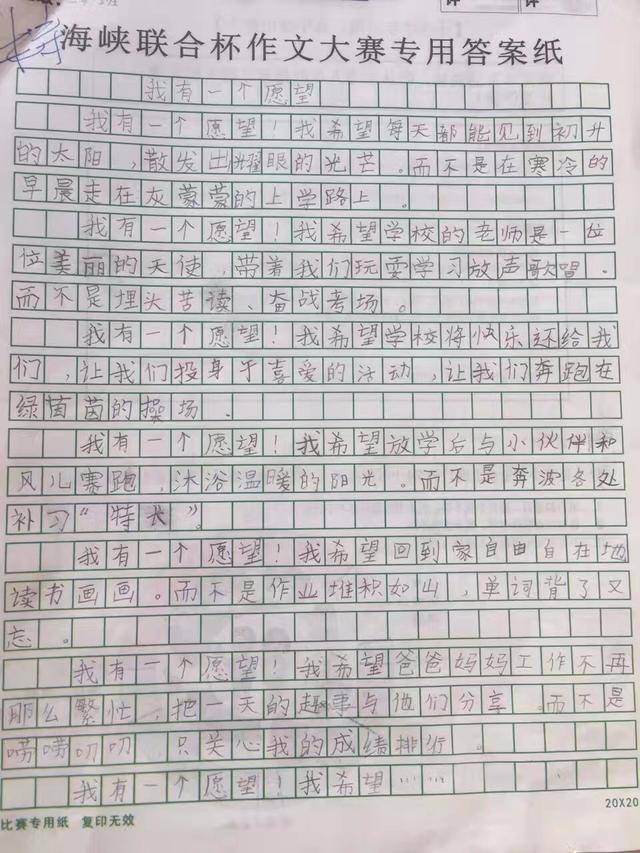 海峡联合杯作文大赛专用答案纸
我有一个愿望
我有一个愿望！我希望每天都能见到初升
的太阳，散发出耀眼的光芒。而不是在寒冷的
早晨走在灰蒙蒙的上学路上。
我有一个愿望！我希望学校的老师是一位
位美丽的天使，带着我们玩耍学习放声歌唱．
而不是埋头苦读、奋战考场。
我有一个愿望！我希望学校将快乐还给我
们，让我们投身于喜爱的活动，让我们奔跑在
绿茵茵的操场．
我有一个愿望！我希望放学后与小伙伴和
风儿赛跑，沐浴温暖的阳光。而不是奔波各处
补习“特长”。
我有一个愿望！我希望回到家自由自在地
读书画画。而不是作业堆积如山，单词背了又
忘。
我有一个愿望！我希望爸爸妈妈工作不再
那么繁忙，把一天的趣事与他们分享．而不是
唠唠叨叨，只关心我的成绩排行。
我有一个愿望！我希望……
20X20
比赛专用纸 复印无效